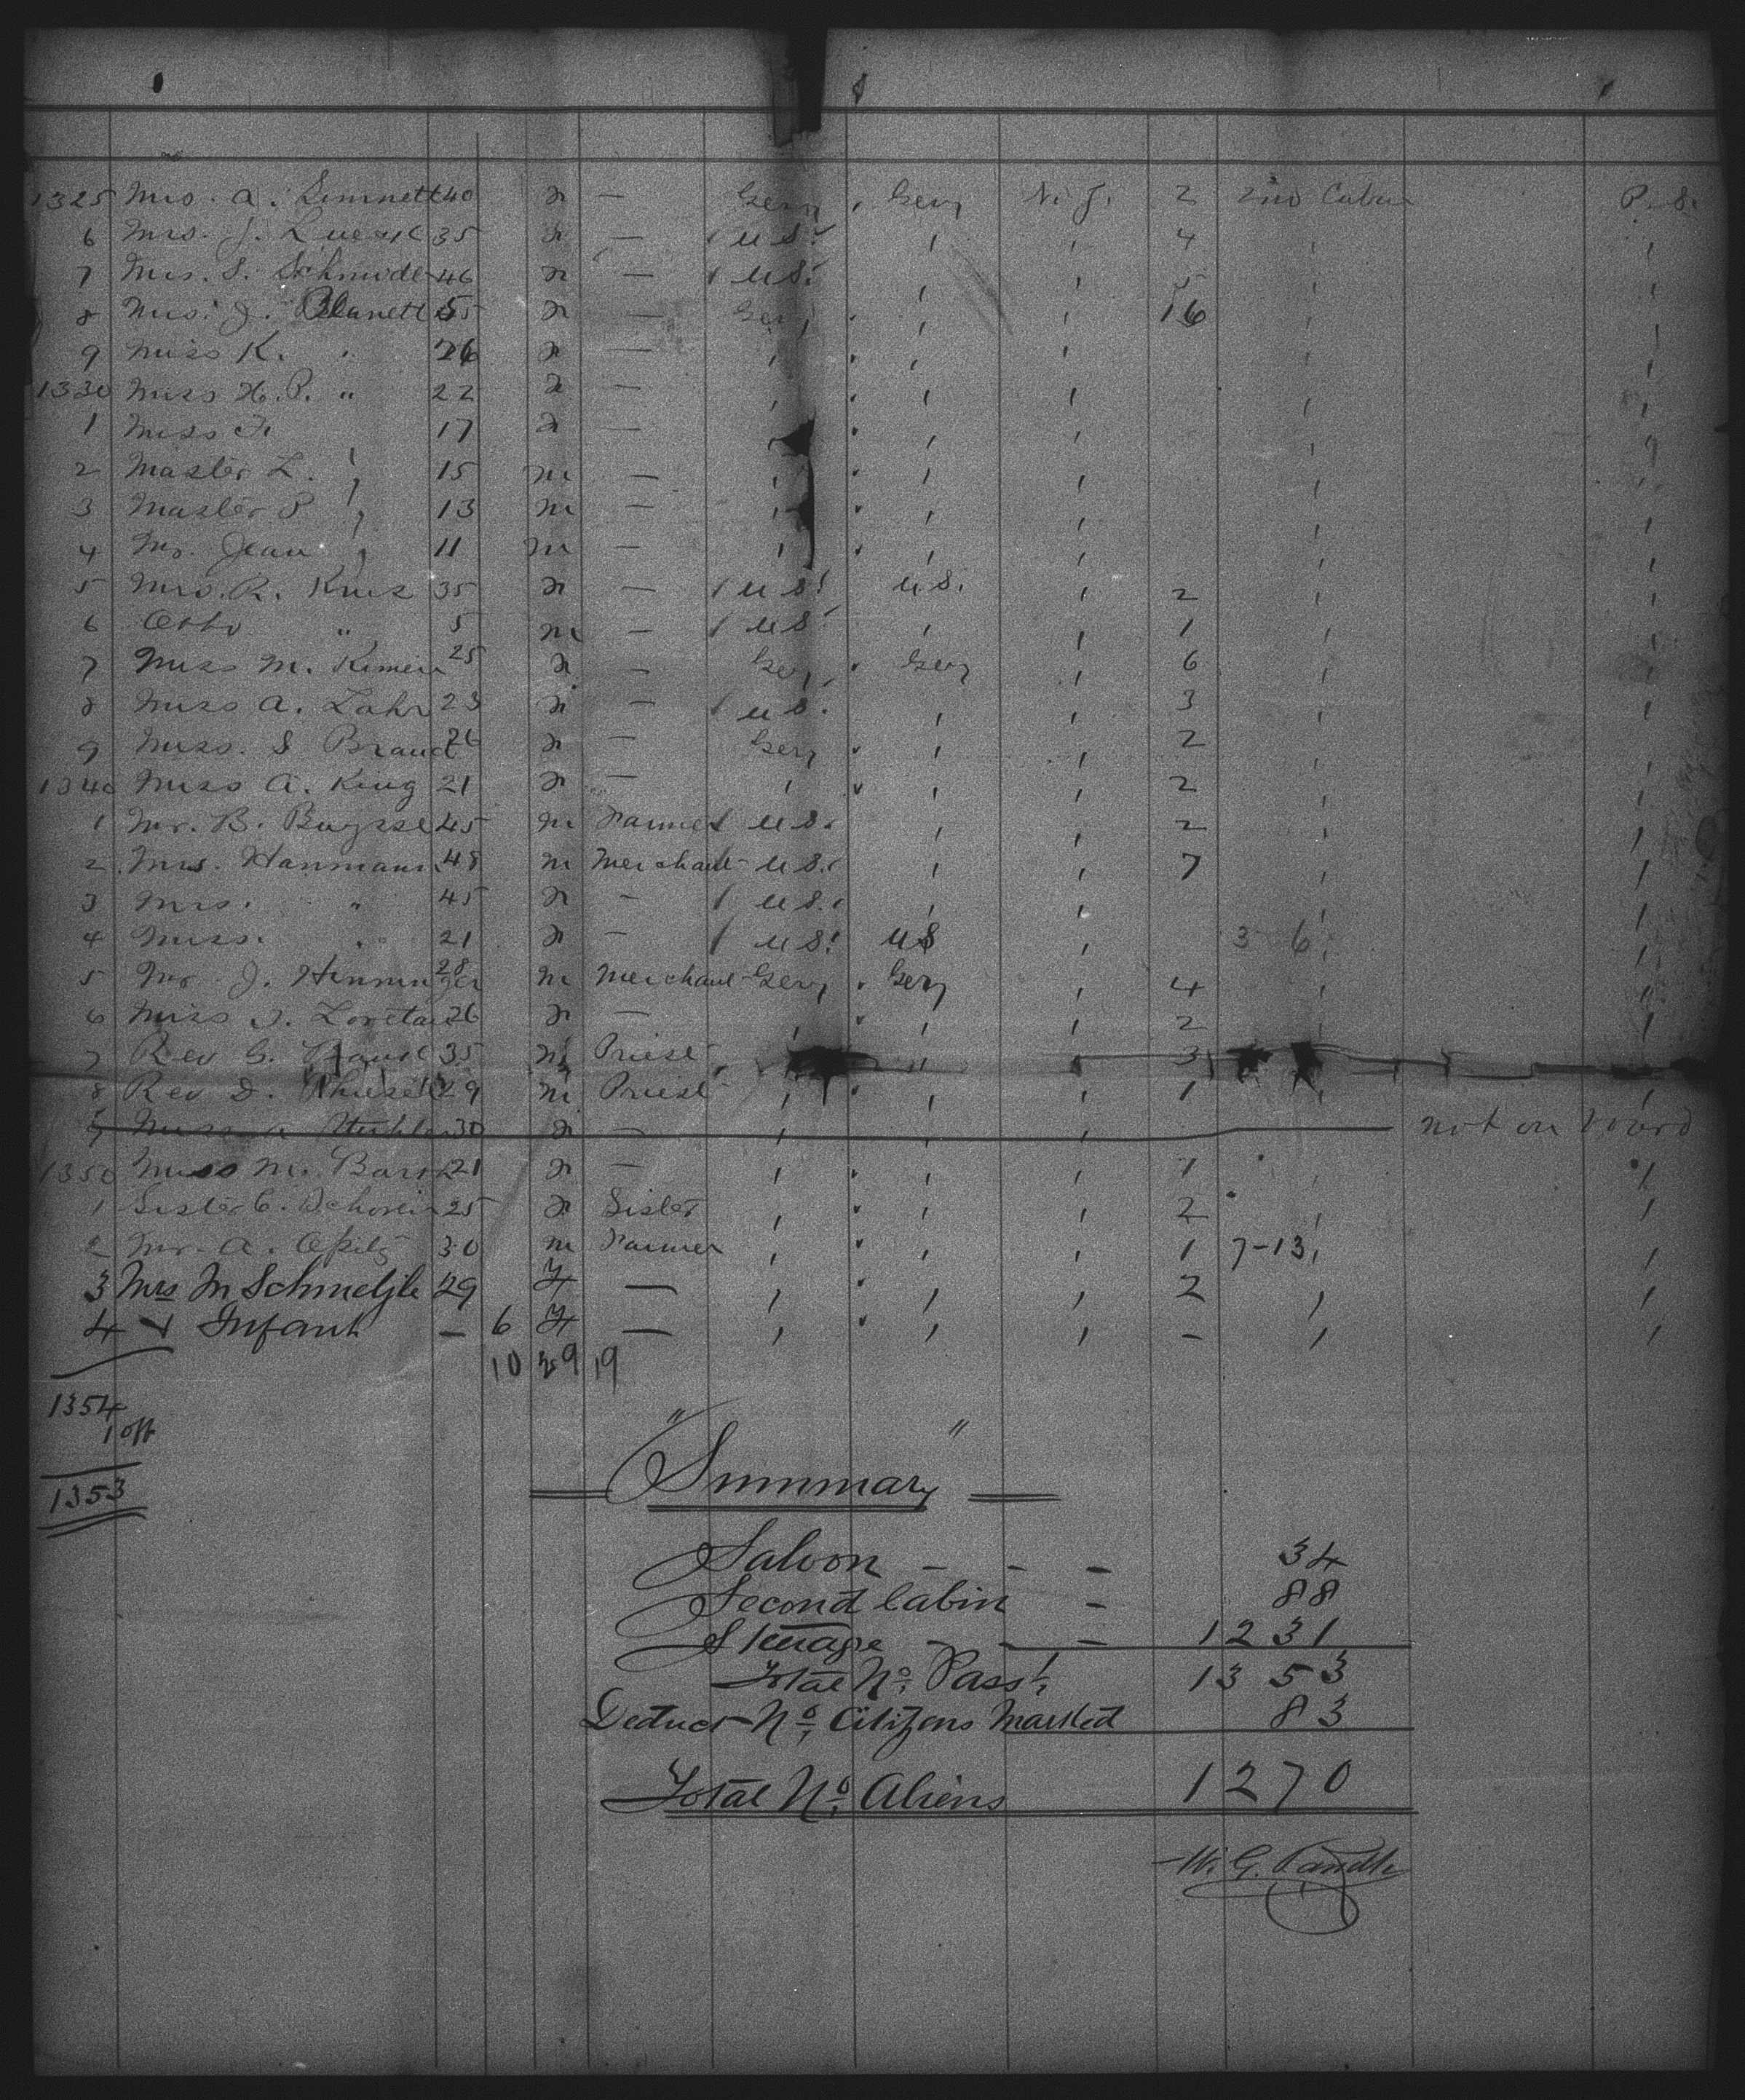 1325 Mrs. A. 40 — Gery , Gery N. J. 2 2nd Cabin P. S.
6 Mrs. J. 35 — / U S. , , 4 , ,
7 Mrs. S. Schmidt 46 — / U S. , , 5 , ,
8 Mrs. J. — Gery , , 16 , ,
9 Miss K. " 26 — , , , , , ,
1330 Miss H. P. " 22 — , , , , , ,
1 Miss F. 17 — , , , , , ,
2 Master L. , 15 m — , , , , , ,
3 Master P , 13 m — , , , , , ,
4 Mr. Jean , 11 m — , , , , , ,
5 Mrs. R. 35 — / U S. U S. , 2 , ,
6 Otto " 5 m — / U S , , 1 , ,
7 Miss M. 25 — Gery , Gery , 6 , ,
8 Miss A. Lahr 23 — / U S. , , 3 , ,
9 Miss. S Brand 26 — Gery , , , 2 , ,
1340 Miss A. King 21 — , , , , 2 , ,
1 Mr. B. 45 m Farmer / U S. , , 2 , ,
2 Mrs. Hanmann 48 m Merchant U S. , , 7 , ,
3 Mrs. " 45 — / U S. , , , ,
4 Miss. " 21 — / U S. U S , 3 6 , ,
5 Mr J. 28 m Merchant Gery , Gery , 4 , ,
6 Miss 26 — , , , , 2 , ,
7 Rev G. 35 m Priest , , , , 3 ,
8 Rev D. 29 m Priest , , , 1 , ,
9 Miss 30 — , , , not on board
1350 Miss M. 21 — , , , , 1 , ,
1 Sister C. 25 Sister , , , , 2 , ,
2 Mr. A. Opitz 30 m Farmer , , , , 1 7-13 , ,
3 Mrs M Schmeltzle 29 f — , , , , 2 , ,
4 Y Infant — 6 f — , , , , — , ,
10 29 19
1354
1 off
1353
" Summary "
Saloon - - - 34
Second Cabin - 88
Steerage - - - 1231
Total No. Passrs. 1353
Deduct No. Citizens Marked 83
Total No. Aliens 1270
W. G.